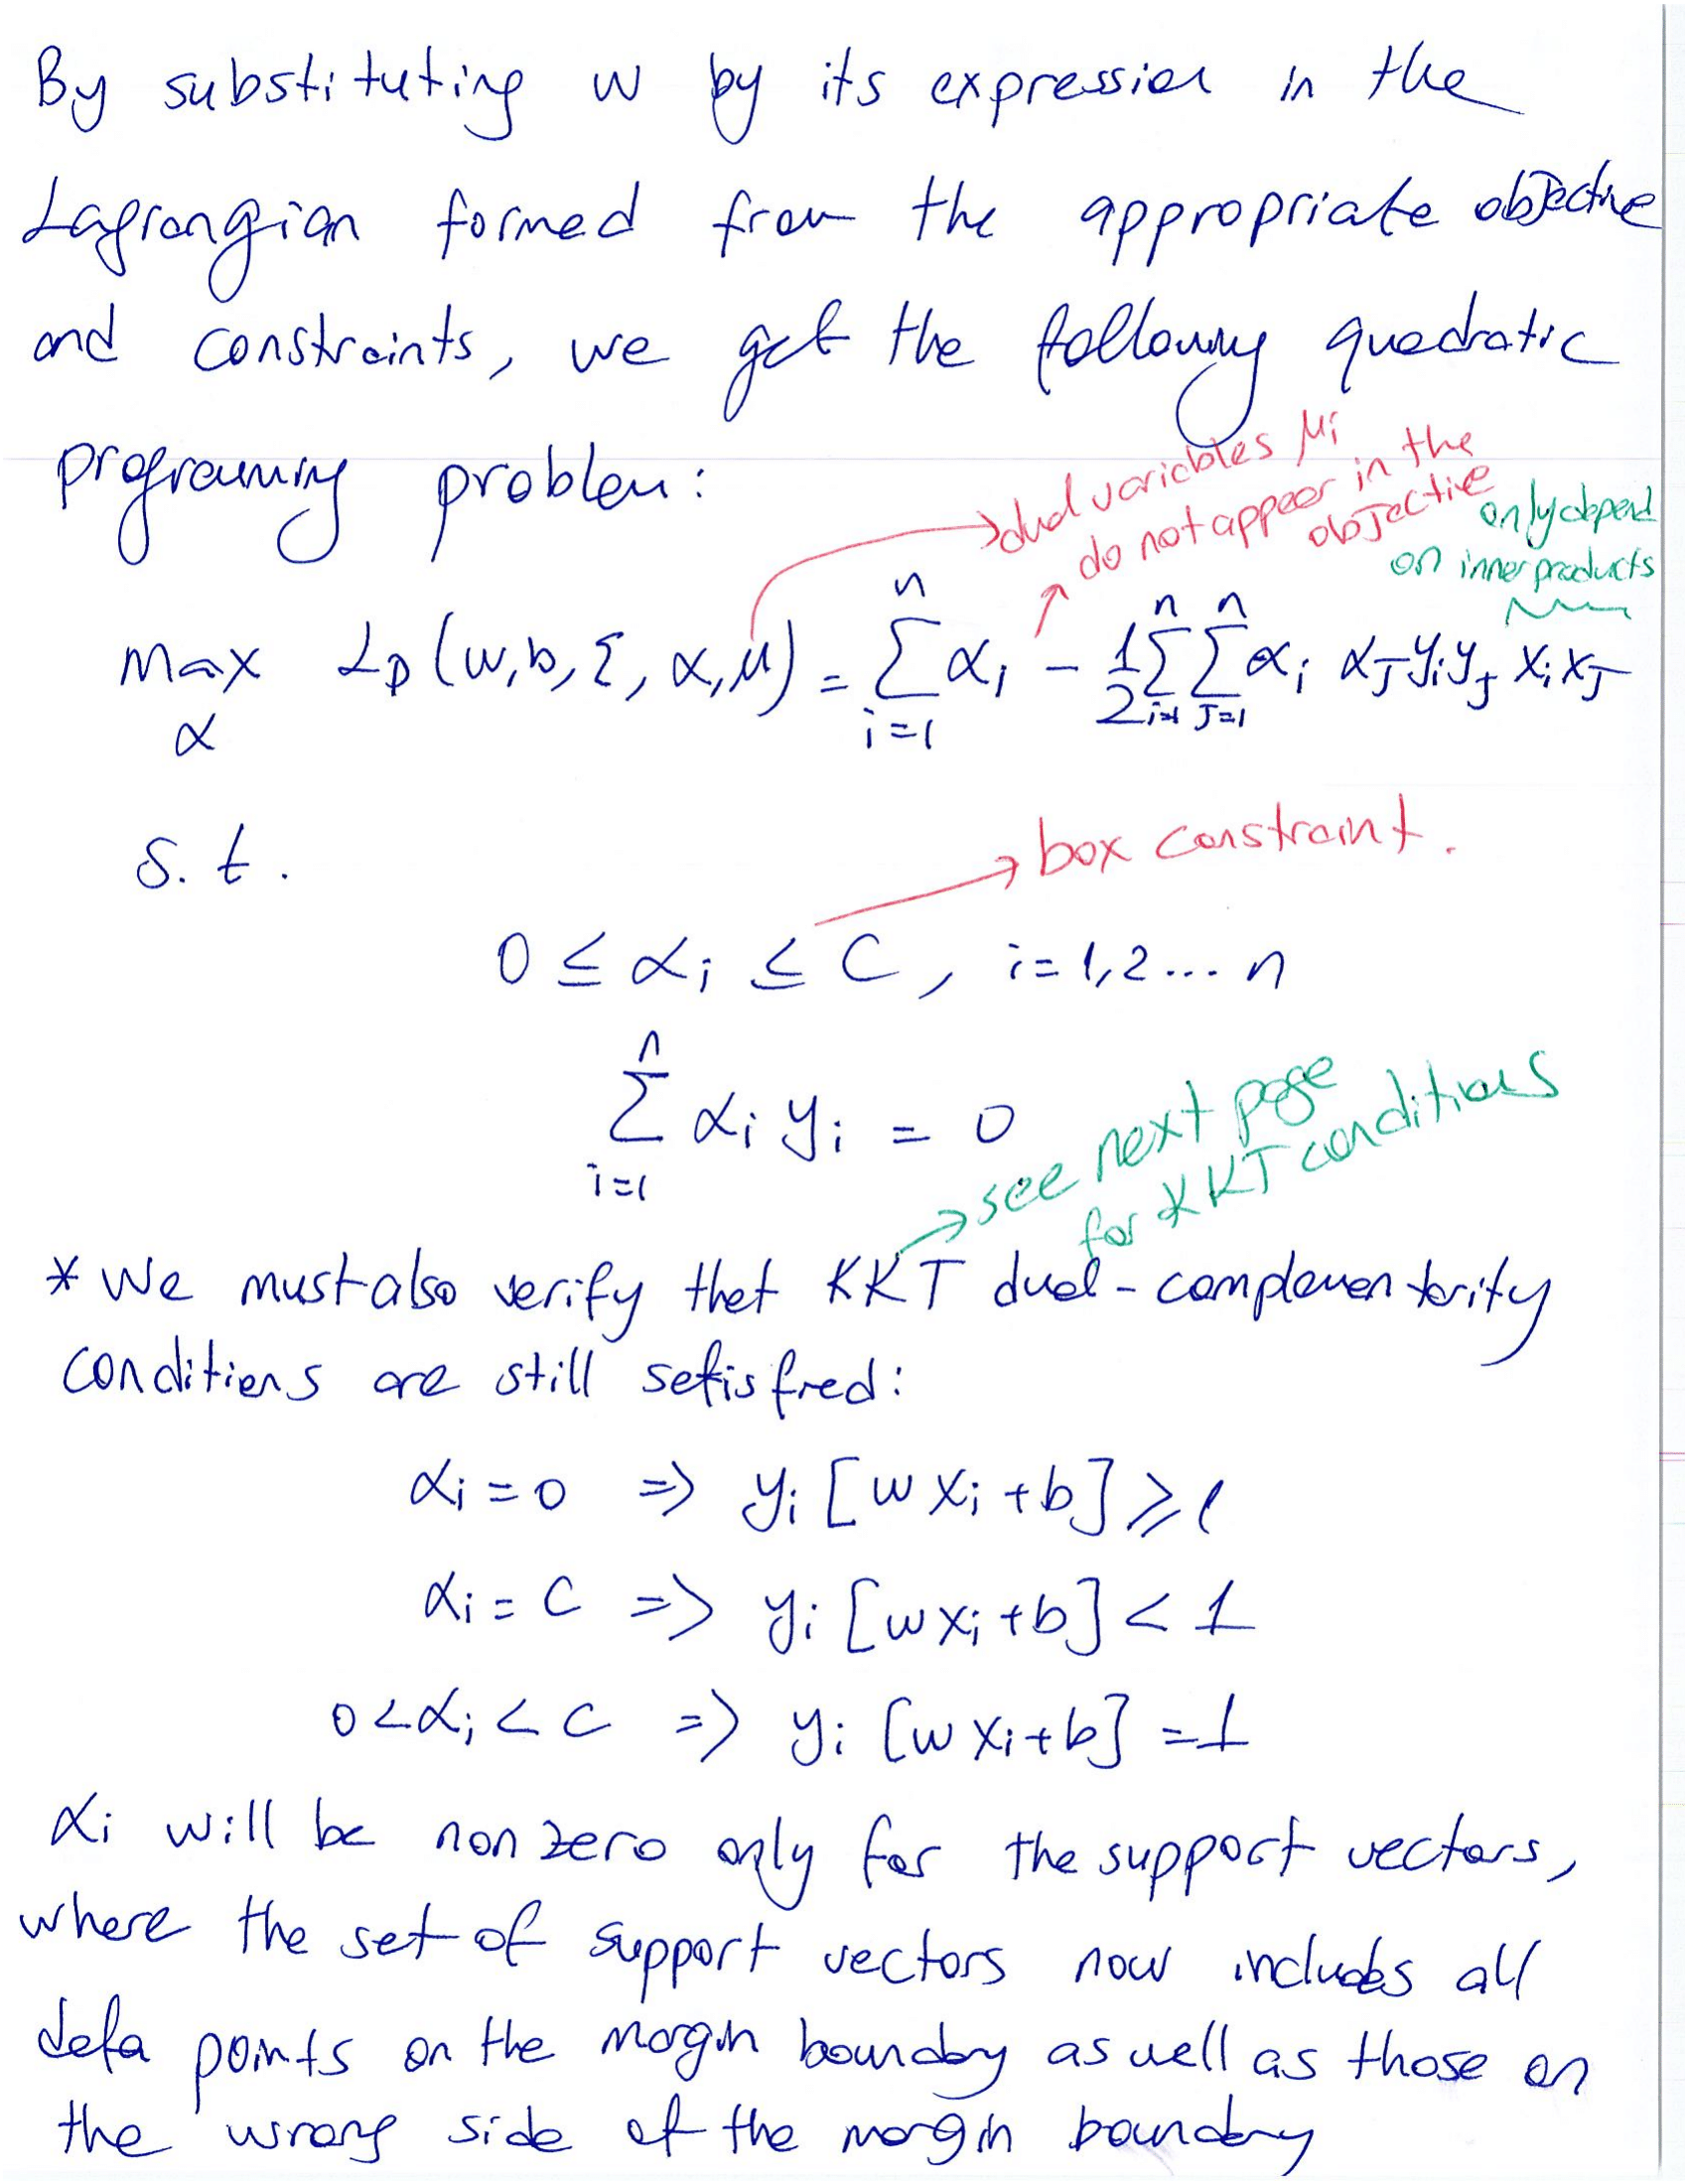 By substituting w by its expression in the
Lagrangian formed from the appropriate objective
and constraints, we get the following quadratic
programing problem:
→dual variables μi
do not appear in the
objective
only depend
on inner products
max Lp (w, b, ξ, α, μ) = Σ αi - 1/2 Σ Σ αi αJ yi yJ xi xJ
α i=1 n i=1 n J=1 n
s.t.
→ box constraint.
0 ≤ αi ≤ C, i=1,2... n
n
Σ αi yi = 0
i=1
→ see next page
for KKT conditions
* We must also verify that KKT dual-complementarity
conditions are still satisfied:
αi = 0 => yi [w xi + b] ≥ 1
αi = C => yi [w xi + b] < 1
0 < αi < C => yi [w xi + b] = 1
αi will be non zero only for the support vectors,
where the set of support vectors now includes all
data points on the margin boundary as well as those on
the wrong side of the margin boundary